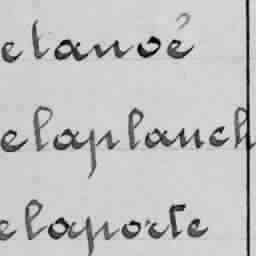 elanoé
elaplanch
elaporte